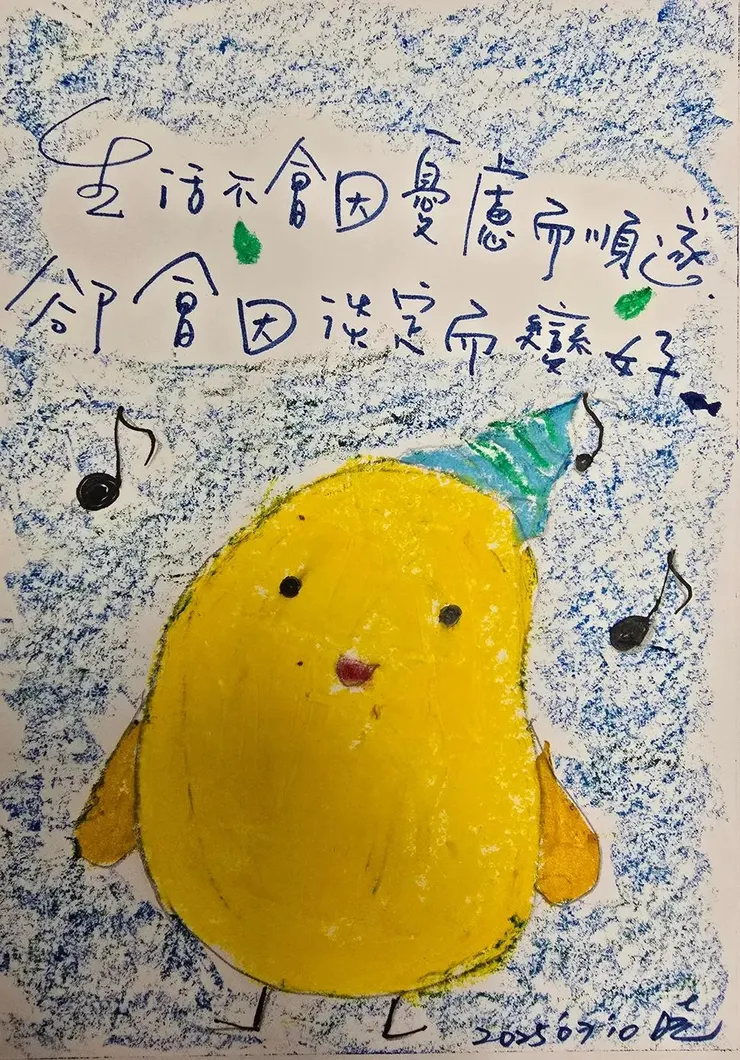 生活不會因憂慮而順遂
卻會因淡定而變好
2025 07 10